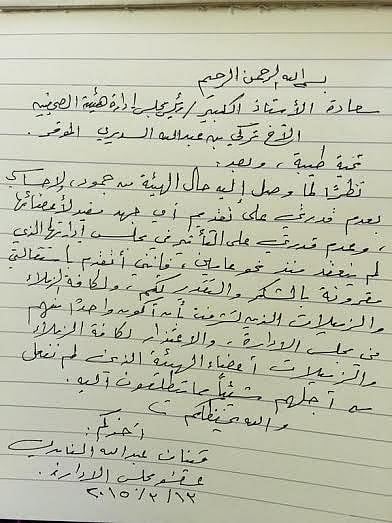 بسم الله الرحمن الرحيم
سعادة الأستاذ الكبير / رئيس مجلس إدارة هيئة الصحفيين
الأخ تركي بن عبدالله السديري الموقر.
تحية طيبة، وبعد:
نظرًا لما وصل إليه حال الهيئة من جمود، ولإحساسي
بعدم قدرتي على تقديم أي جهد مفيد لأعضائها
، وعدم قدرتي على التأثير في مجلس إدارتها الذي
لم ينعقد منذ نحو عامين، فإنني أتقدم باستقالتي
مقرونة بالشكر والتقدير لكم، ولكافة الزملاء
والزميلات الذين تشرفت بأن أكون واحدًا منهم
في مجلس الإدارة، والاعتذار لكافة الزملاء
والزميلات أعضاء الهيئة الذين لم نفعل
من أجلهم شيئًا مما يتطلعون إليه.
والله يحفظكم
أخوكم:
قينان عبدالله الغامدي
عضو مجلس الإدارة.
٢٠١٥/٢/١٣